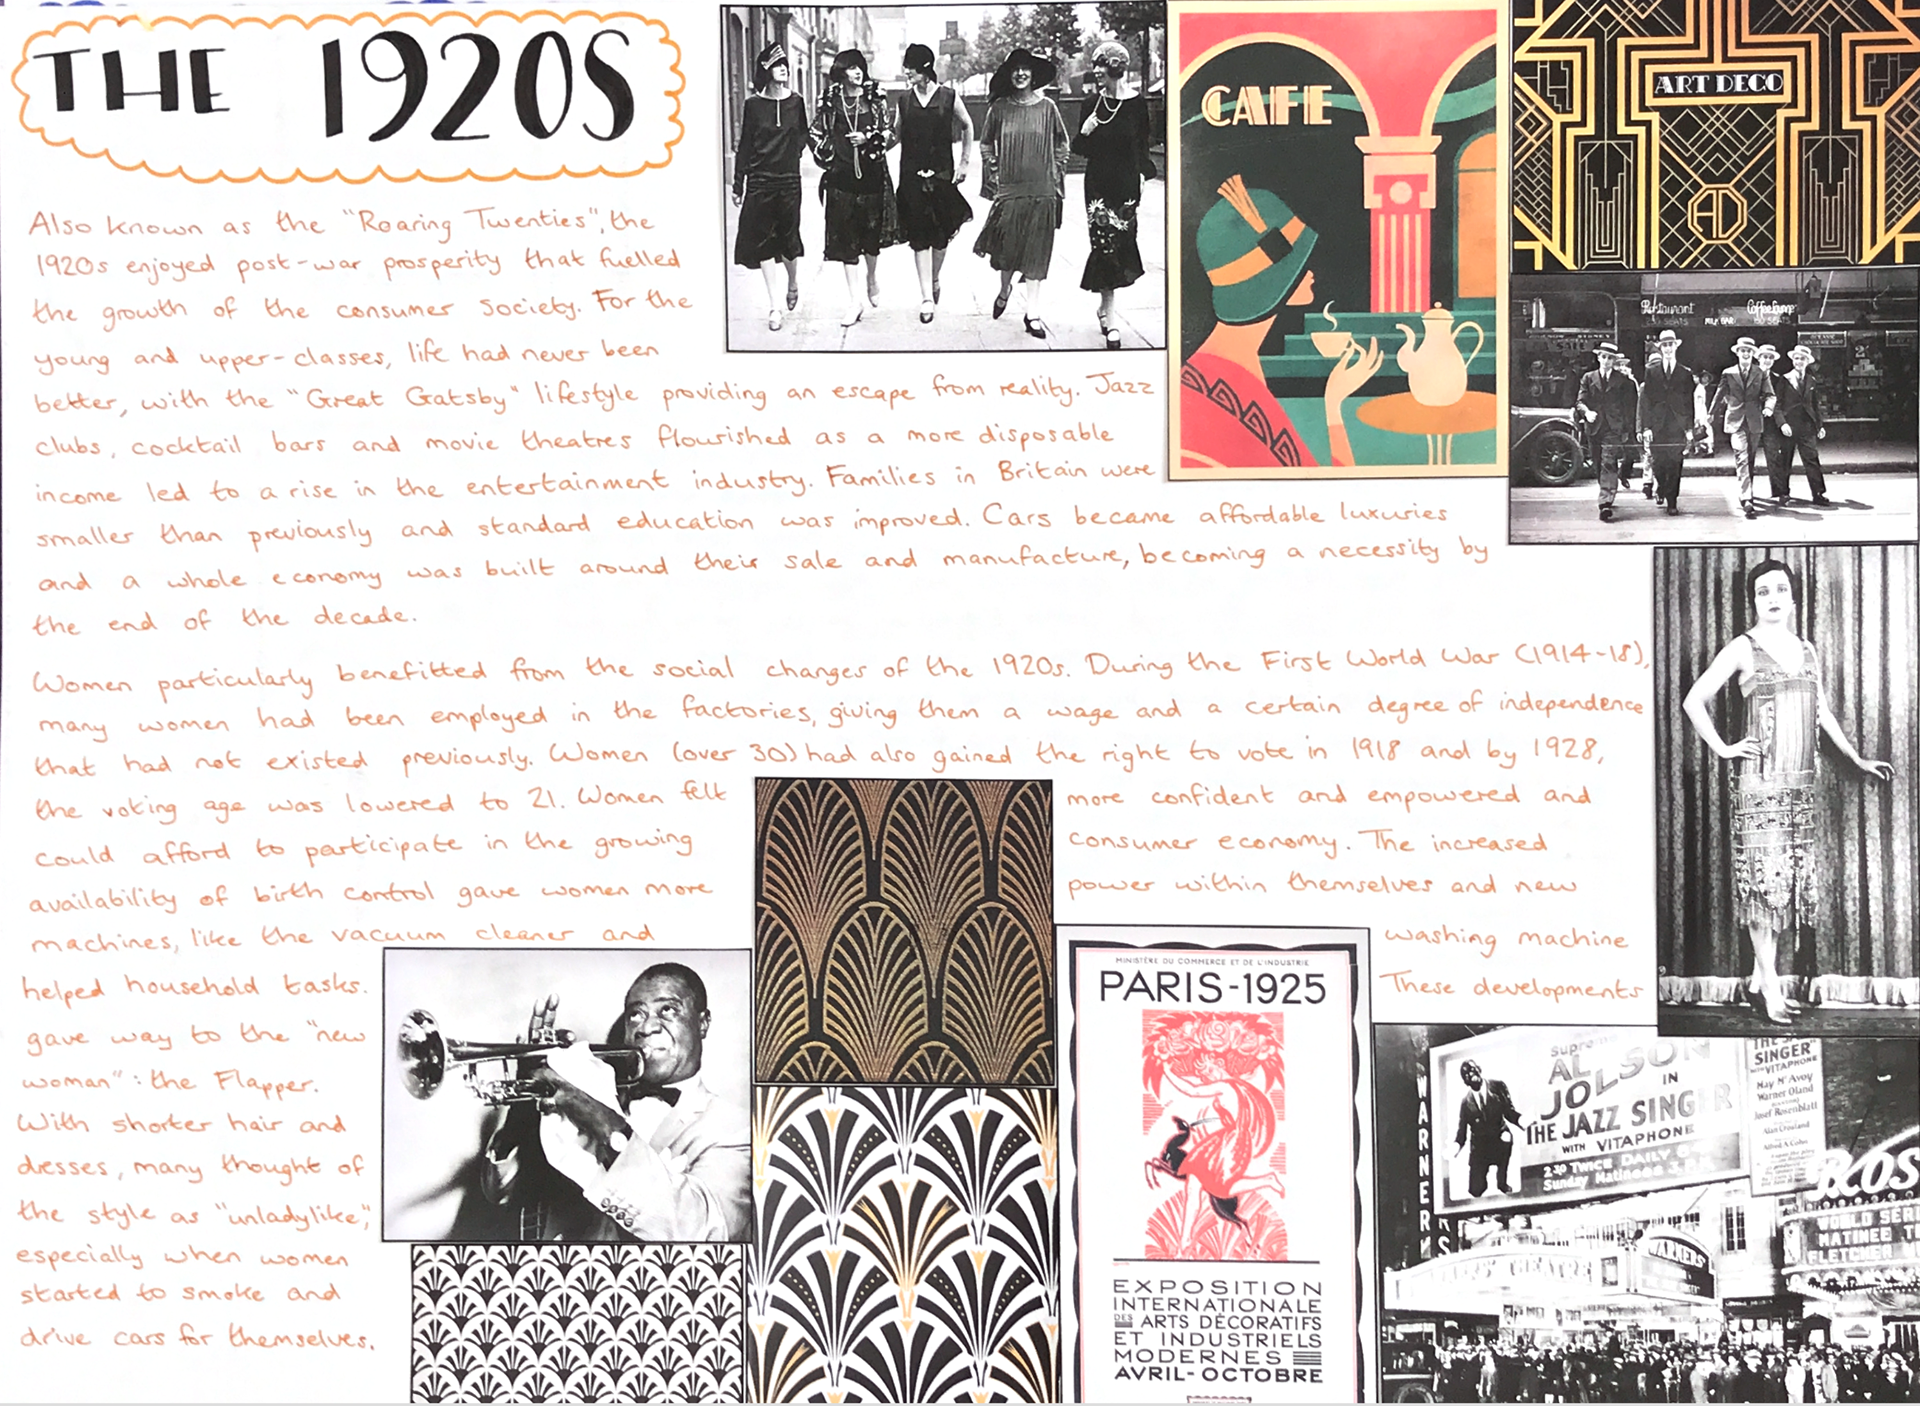 THE 1920S
Also known as the "Roaring Twenties", the
1920s enjoyed post-war prosperity that fuelled
the growth of the consumer society. For the
young and upper-classes, life had never been
better, with the "Great Gatsby" lifestyle providing an escape from reality. Jazz
clubs, cocktail bars and movie theatres flourished as a more disposable
income led to a rise in the entertainment industry. Families in Britain were
smaller than previously and standard education was improved. Cars became affordable luxuries
and a whole economy was built around their sale and manufacture, becoming a necessity by
the end of the decade.
Women particularly benefitted from the social changes of the 1920s. During the First World War (1914-18),
many women had been employed in the factories, giving them a wage and a certain degree of independence
that had not existed previously. Women (over 30) had also gained the right to vote in 1918 and by 1928,
the voting age was lowered to 21. Women felt more confident and empowered and
could afford to participate in the growing consumer economy. The increased
availability of birth control gave women more power within themselves and new
machines, like the vacuum cleaner and washing machine
helped household tasks. These developments
gave way to the "new
woman": the Flapper.
With shorter hair and
dresses, many thought of
the style as "unladylike",
especially when women
started to smoke and
drive cars for themselves.
CAFE
ART DECO
AD
Restaurant
Coffee Lounge
MILK BAR
MINISTÈRE DU COMMERCE ET DE L'INDUSTRIE
PARIS-1925
EXPOSITION
INTERNATIONALE
DES ARTS DÉCORATIFS
ET INDUSTRIELS
MODERNES
AVRIL-OCTOBRE
WARNERS
Supreme
AL
JOLSON
IN
THE JAZZ SINGER
WITH VITAPHONE
2:30 TWICE DAILY
Sunday Matinees 3
THE
SINGER"
VITAPHONE
May McAvoy
Warner Oland
Josef Rosenblatt
Alan Crosland
WARNERS' THEATRE
WARNERS'
ROS
WORLD SERI
MATINEE
FLETCHER